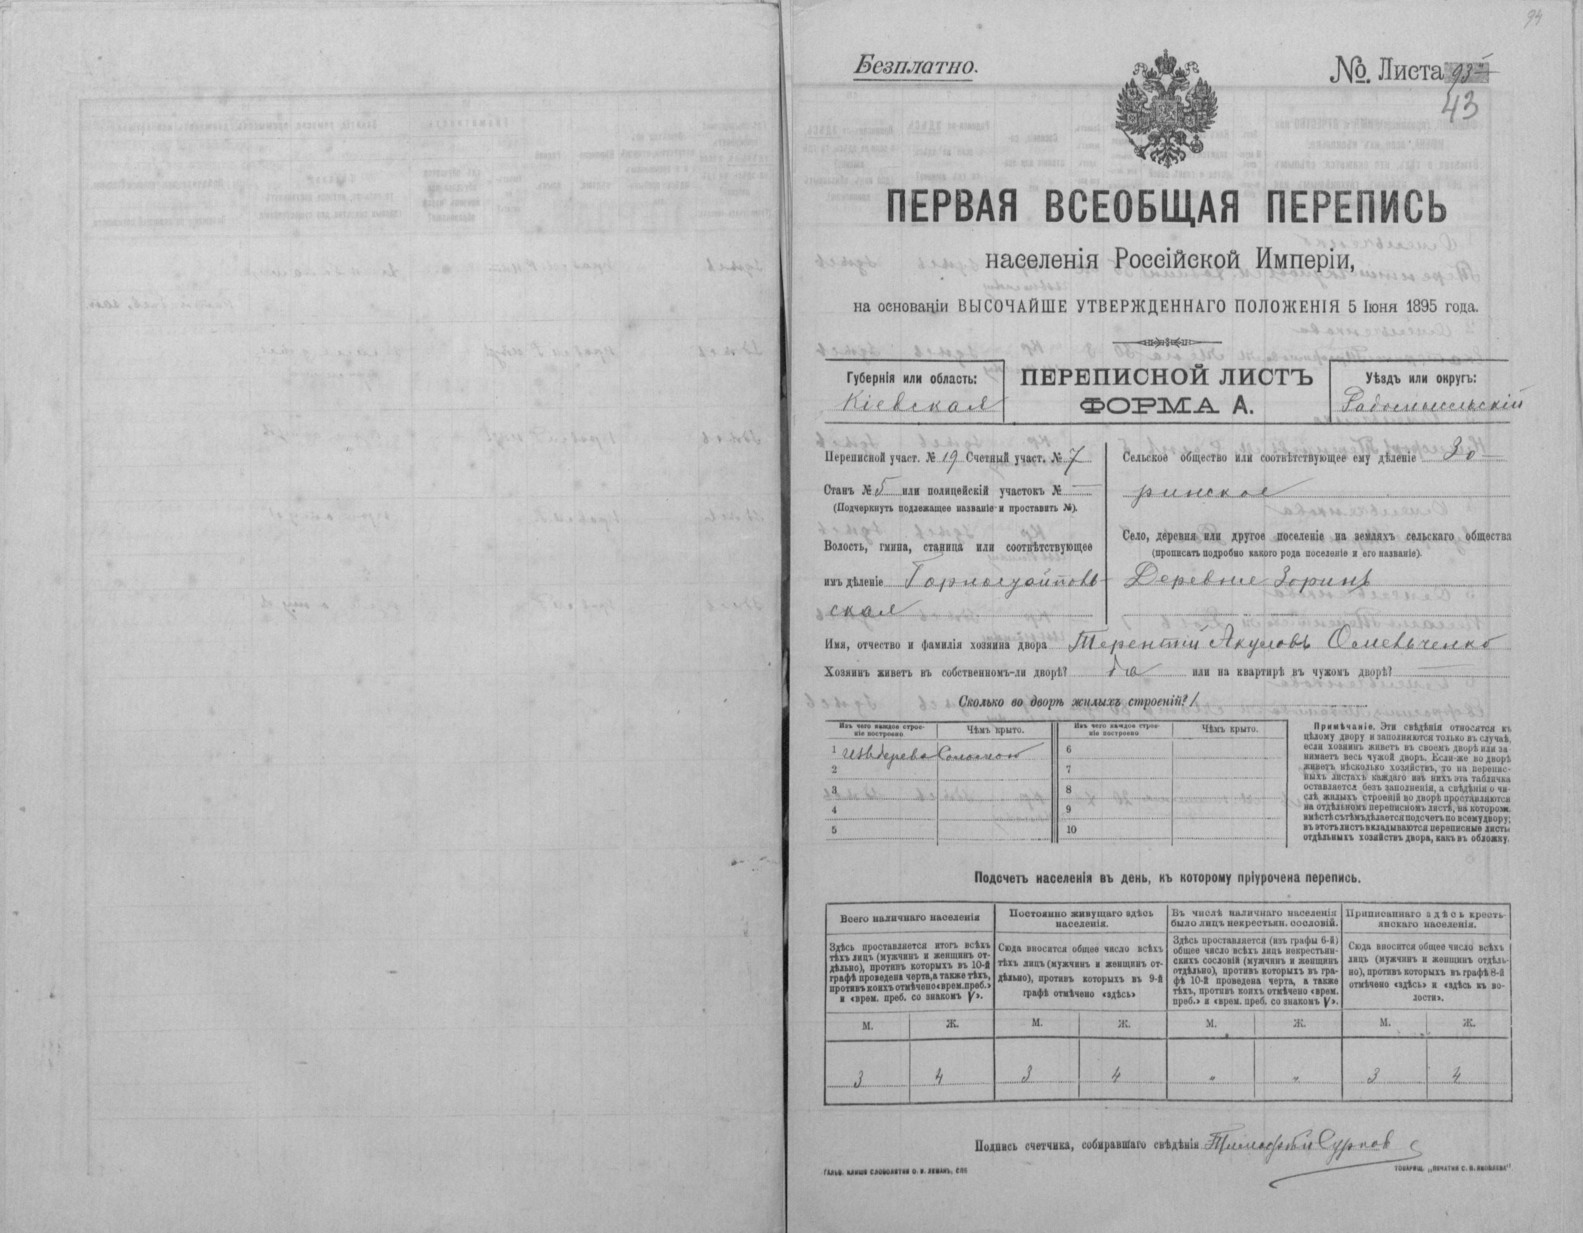 94
Безплатно.
№. Листа 93
43
ПЕРВАЯ ВСЕОБЩАЯ ПЕРЕПИСЬ
населенія Россійской Имперіи,
на основаніи ВЫСОЧАЙШЕ УТВЕРЖДЕННАГО ПОЛОЖЕНІЯ 5 Іюня 1895 года.
Губернія или область:
Кіевская
ПЕРЕПИСНОЙ ЛИСТЪ
ФОРМА А.
Уѣздъ или округъ:
Радомысльскій
Переписной участ. № 19 Счетный участ. № 7
Станъ № 5 или полицейскій участокъ № —
(Подчеркнуть подлежащее названіе и проставить №).
Волость, гмина, станица или соотвѣтствующее
имъ дѣленіе Горностайпов-
ская
Сельское общество или соотвѣтствующее ему дѣленіе Зо-
ринское
Село, деревня или другое поселеніе на земляхъ сельскаго общества
(прописать подробно какого рода поселеніе и его названіе).
Деревне Зоринъ
Имя, отчество и фамилія хозяина двора Терентій Акуловъ Омельченко
Хозяинъ живетъ въ собственномъ-ли дворѣ? да или на квартирѣ въ чужомъ дворѣ? —
Сколько во дворѣ жилыхъ строеній? 1
Изъ чего каждое строе-
ніе построено
Чѣмъ крыто.
1 Изъ дерева Соломою
2
3
4
5
Изъ чего каждое строе-
ніе построено
Чѣмъ крыто.
6
7
8
9
10
Примѣчаніе. Эти свѣдѣнія относятся къ
цѣлому двору и заполняются только въ случаѣ,
если хозяинъ живетъ въ своемъ дворѣ или за-
нимаетъ весь чужой дворъ. Если-же во дворѣ
живетъ нѣсколько хозяйствъ, то на перепис-
ныхъ листахъ каждаго изъ нихъ эта табличка
оставляется безъ заполненія, а свѣдѣнія о чи-
слѣ жилыхъ строеній во дворѣ проставляются
на отдѣльномъ переписномъ листѣ, на которомъ
вмѣстѣ съ тѣмъ дѣлается подсчетъ по всему двору;
въ этотъ листъ вкладываются переписные листы
отдѣльныхъ хозяйствъ двора, какъ въ обложку.
Подсчетъ населенія въ день, къ которому пріурочена перепись.
Всего наличнаго населенія
Здѣсь проставляется итогъ всѣхъ
тѣхъ лицъ (мужчинъ и женщинъ от-
дѣльно), противъ которыхъ въ 10-й
графѣ проведена черта, а также тѣхъ,
противъ коихъ отмѣчено «врем. преб.»
и «врем. преб. со знакомъ V».
Постоянно живущаго здѣсь
населенія.
Сюда вносится общее число всѣхъ
тѣхъ лицъ (мужчинъ и женщинъ от-
дѣльно), противъ которыхъ въ 9-й
графѣ отмѣчено «здѣсь»
Въ числѣ наличнаго населенія
было лицъ некрестьян. сословій.
Здѣсь проставляется (изъ графы 6-й)
общее число всѣхъ лицъ некрестьян-
скихъ сословій (мужчинъ и женщинъ
отдѣльно), противъ которыхъ въ гра-
фѣ 10-й проведена черта, а также
тѣхъ, противъ коихъ отмѣчено «врем.
преб.» и «врем. преб. со знакомъ V».
Приписаннаго здѣсь кресть-
янскаго населенія.
Сюда вносится общее число всѣхъ
лицъ (мужчинъ и женщинъ отдѣль-
но), противъ которыхъ въ графѣ 8-й
отмѣчено «здѣсь» и «здѣсь къ во-
лости».
М. Ж. М. Ж. М. Ж. М. Ж.
3 4 3 4 „ „ 3 4
Подпись счетчика, собиравшаго свѣдѣнія Тимофѣй
ТОВАРИЩ. „ПЕЧАТНЯ С. П. ЯКОВЛЕВА"